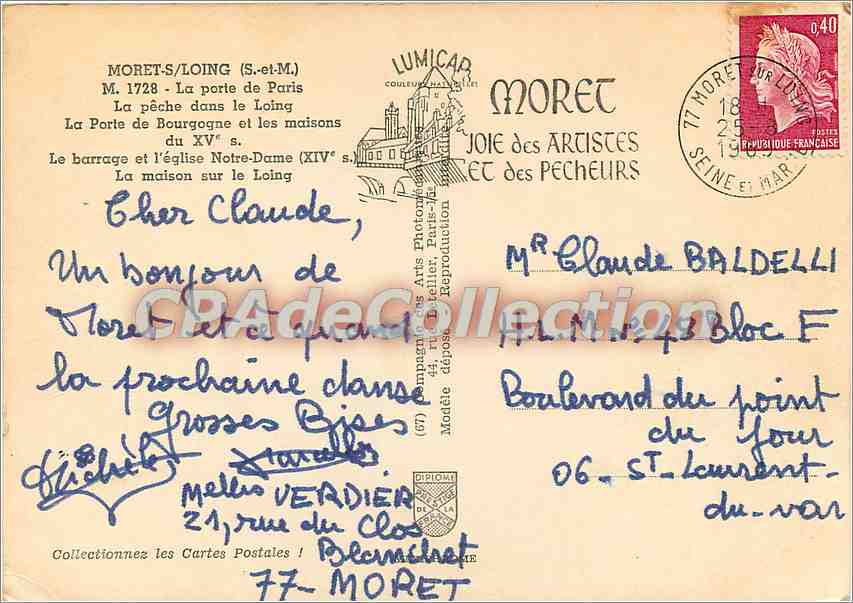 MORET-S/LOING (S.-et-M.)
M. 1728 - La porte de Paris
La pêche dans le Loing
La Porte de Bourgogne et les maisons
du XVe s.
Le barrage et l'église Notre-Dame (XIVe s.)
La maison sur le Loing
LUMICAP
COULEURS NATURELLES
MORET
JOIE des ARTISTES
ET des PECHEURS
77 MORET SUR LOING
18
25-8
19
SEINE ET MAR
0,40
POSTES
REPUBLIQUE FRANÇAISE
Cher Claude,
Un bonjour de
Moret et à quand
la prochaine danse
Grosses Bises
Michèle
Melles VERDIER
21, rue du Clos
Blanchet
77- MORET
(67) Compagnie des Arts Photomécaniques
44, rue Letellier, Paris-15e
Modèle déposé - Reproduction interdite
Mr Claude BALDELLI
H.L.M no 43 Bloc F
Boulevard du point
du jour
06. St. Laurent-
du-var
DIPLOME
PRESTIGE
DE LA
FRANCE
Collectionnez les Cartes Postales !
CPAdeCollection